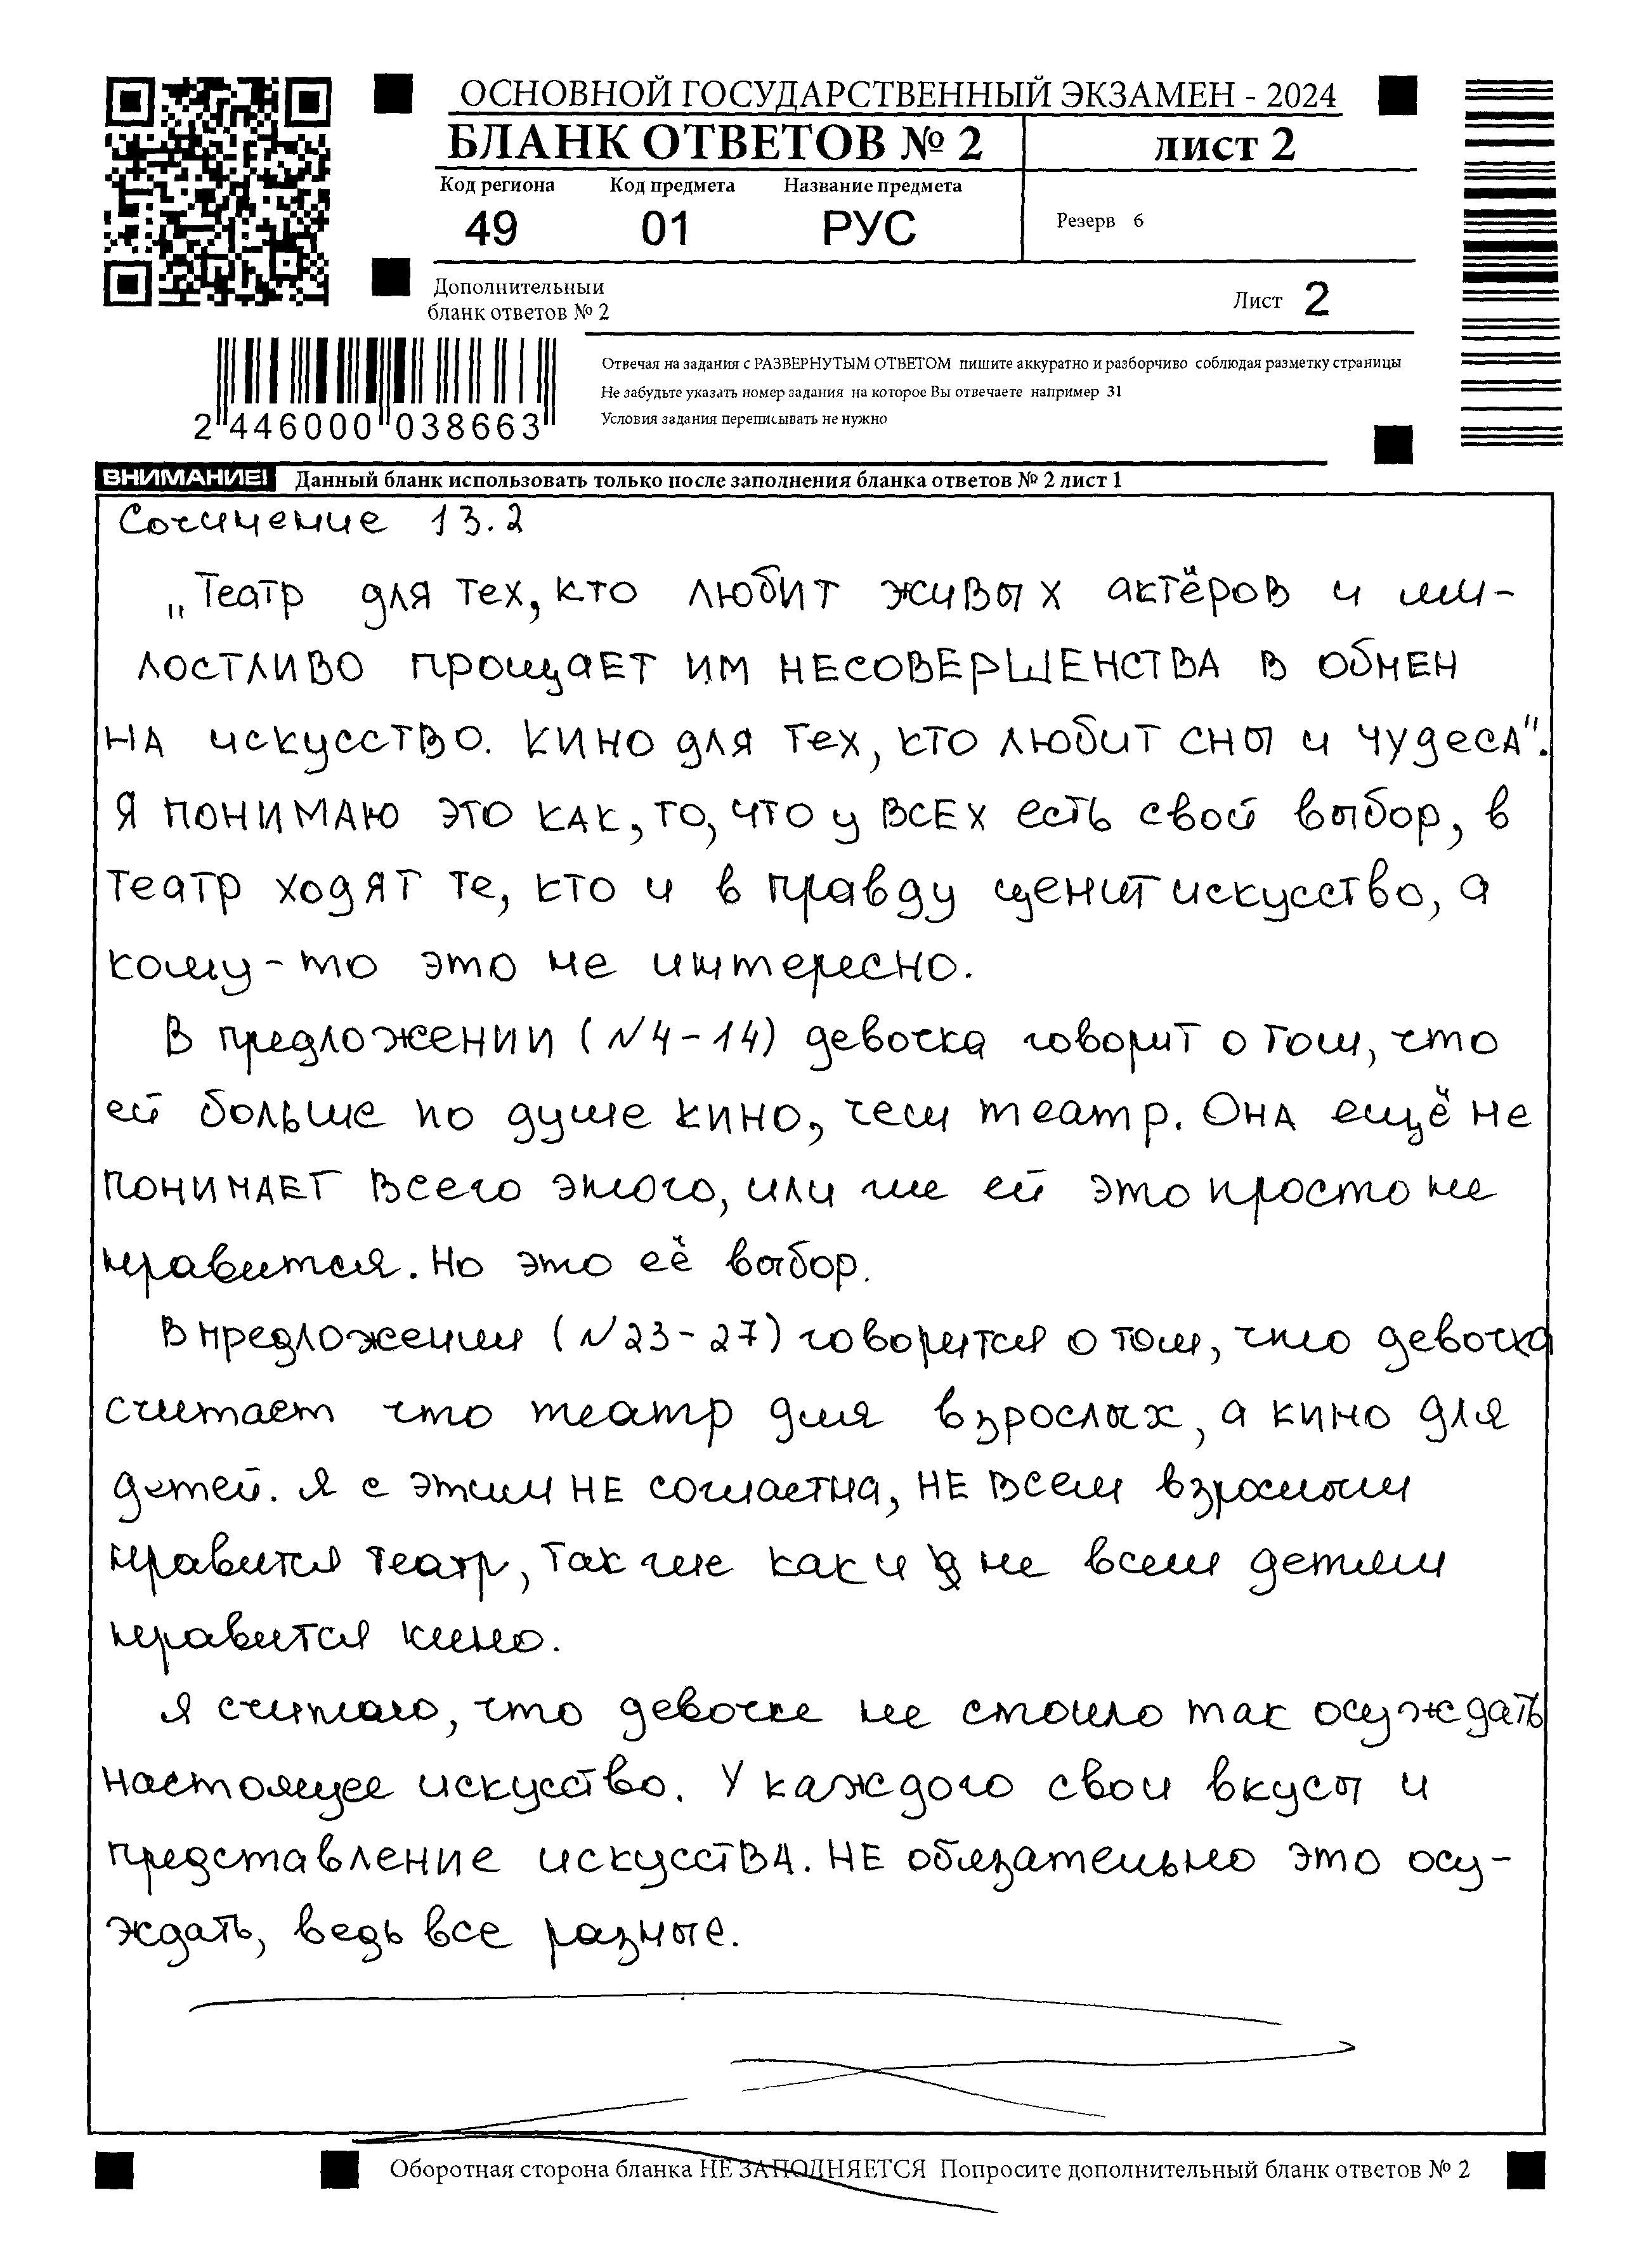 ОСНОВНОЙ ГОСУДАРСТВЕННЫЙ ЭКЗАМЕН - 2024
БЛАНК ОТВЕТОВ № 2
лист 2
Код региона
Код предмета
Название предмета
49
01
РУС
Резерв 6
Дополнительный
бланк ответов № 2
Лист 2
2 446000 038663
Отвечая на задания с РАЗВЕРНУТЫМ ОТВЕТОМ пишите аккуратно и разборчиво соблюдая разметку страницы
Не забудьте указать номер задания на которое Вы отвечаете например 31
Условия задания переписывать не нужно
ВНИМАНИЕ! Данный бланк использовать только после заполнения бланка ответов № 2 лист 1
Сочинение 13.2
„Театр для тех, кто любит живых актёров и ми-
лостливо прощает им несовершенства в обмен
на искусство. Кино для тех, кто любит сны и чудеса".
Я понимаю это как, то, что у всех есть свой выбор, в
театр ходят те, кто и в правду ценит искусство, а
кому-то это не интересно.
В предложении (№4-14) девочка говорит о том, что
ей больше по душе кино, чем театр. Она ещё не
понимает всего этого, или же ей это просто не
нравится. Но это её выбор.
В предложении (№23-27) говорится о том, что девочка
считает что театр для взрослых, а кино для
детей. Я с этим не согластна, не всем взрослым
нравится театр, так же как и не всем детям
нравится кино.
Я считаю, что девочке не стоило так осуждать
настоящее искусство. У каждого свои вкусы и
представление искусства. Не обязательно это осу-
ждать, ведь все разные.
Оборотная сторона бланка НЕ ЗАПОЛНЯЕТСЯ Попросите дополнительный бланк ответов № 2